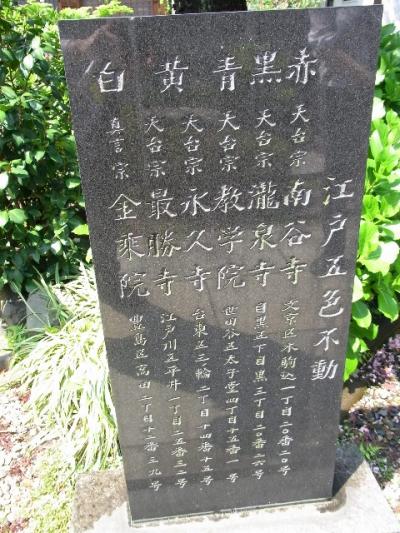 江戸五色不動
赤 天台宗 南谷寺 文京区本駒込一丁目二〇番二〇号
黒 天台宗 瀧泉寺 目黒区下目黒三丁目二〇番二六号
青 天台宗 教学院 世田谷区太子堂四丁目十五番一号
黄 天台宗 永久寺 台東区三輪二丁目十四番十五号
天台宗 最勝寺 江戸川区平井一丁目二五番三二号
白 真言宗 金乗院 豊島区高田二丁目十二番三九号